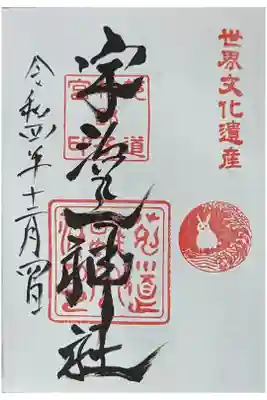 世界文化遺産
宇治上神社
令和四年十二月四日